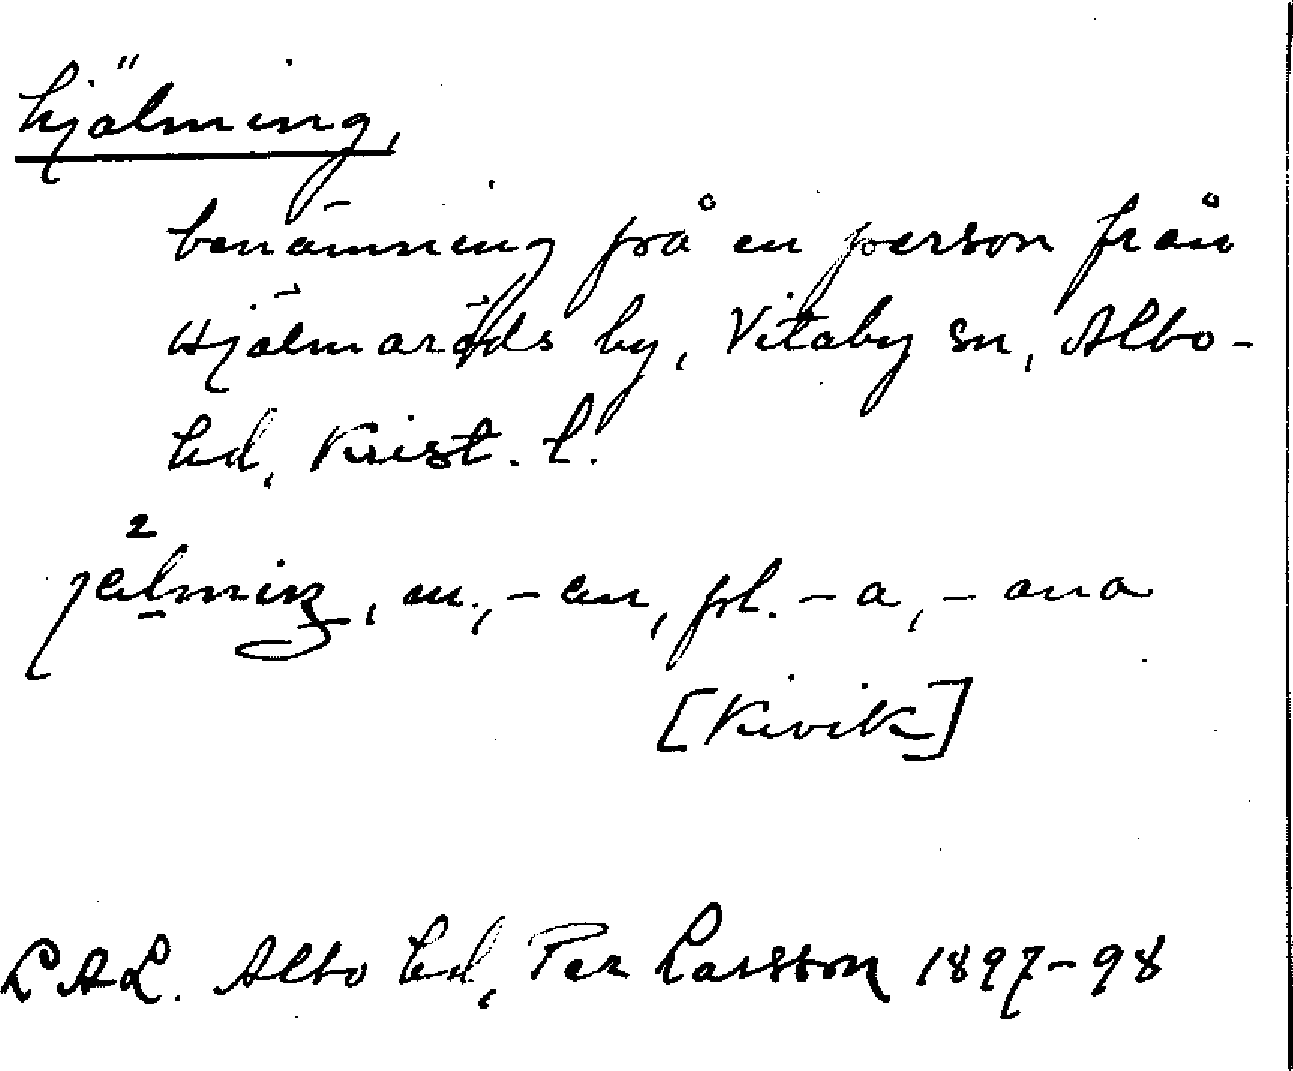 hjälming,
benämning på en person från
Hjälmaröds by, Vitaby sn, Albo-
hd, Krist. l.
jälming, m., -en, pl. -a, -ana
[Kivik]
LAL. Albo hd, Per Larsson 1897-98